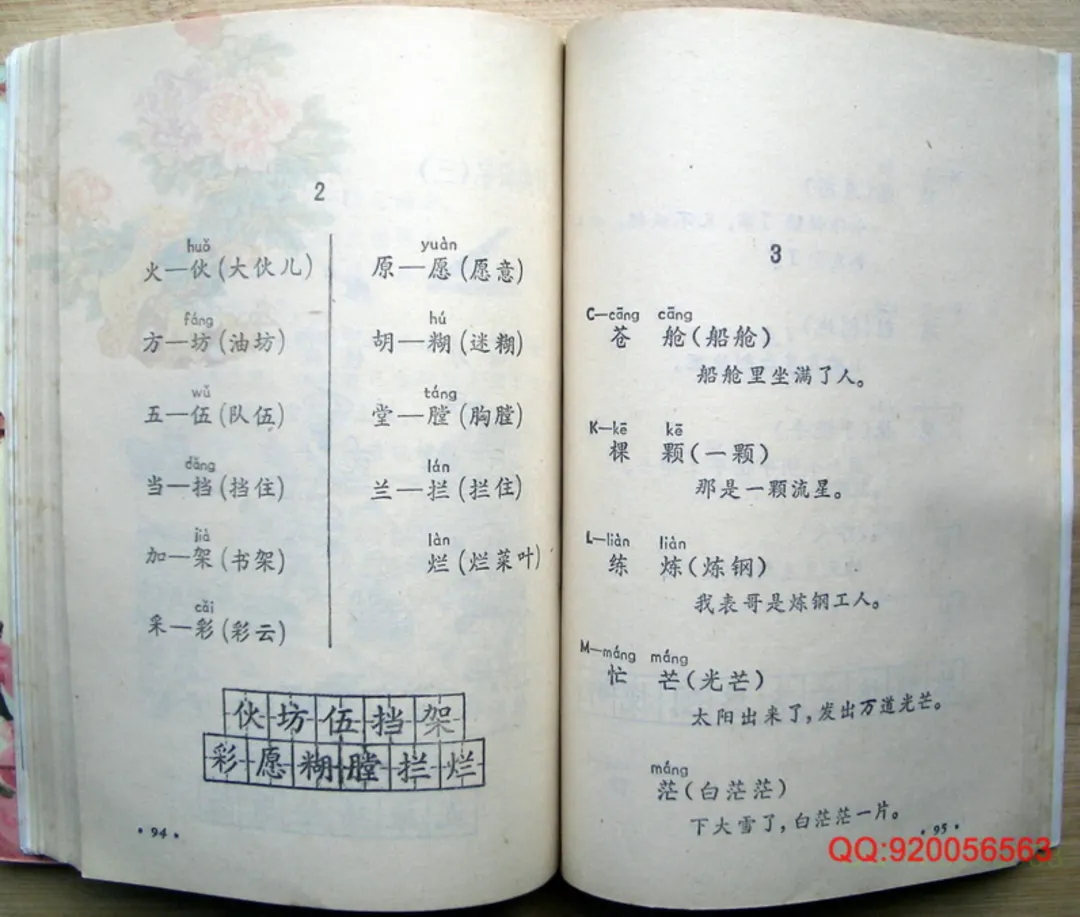 2
huǒ
火—伙(大伙儿)
fáng
方—坊(油坊)
wǔ
五—伍(队伍)
dǎng
当—挡(挡住)
jià
加—架(书架)
cǎi
采—彩(彩云)
yuàn
原—愿(愿意)
hú
胡—糊(迷糊)
táng
堂—膛(胸膛)
lán
兰—拦(拦住)
làn
烂(烂菜叶)
伙坊伍挡架
彩愿糊膛拦烂
·94·
3
C—cāng cāng
苍 舱(船舱)
船舱里坐满了人。
K—kē kē
棵 颗(一颗)
那是一颗流星。
L—liàn liàn
练 炼(炼钢)
我表哥是炼钢工人。
M—máng máng
忙 芒(光芒)
太阳出来了,发出万道光芒。
máng
茫(白茫茫)
下大雪了,白茫茫一片。
·95·
QQ:920056563